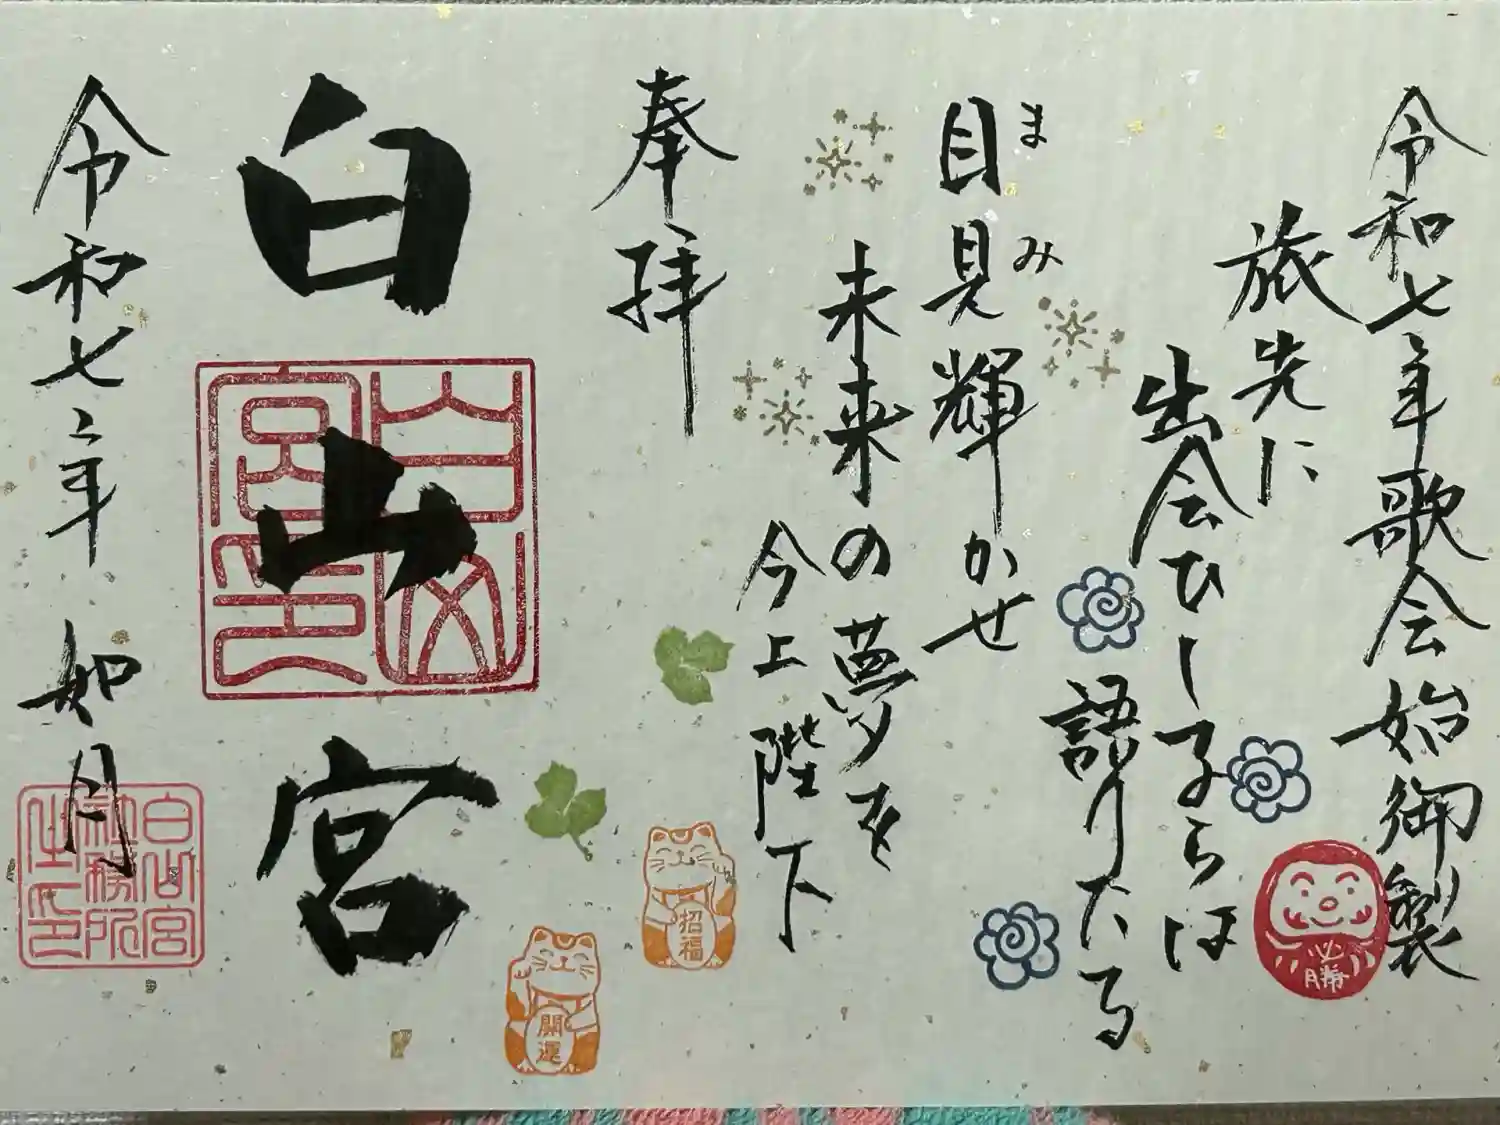 令和七年歌会始御製
旅先に
出会ひし子らは
語りたる
目見輝かせ
まみ
未来の夢を
今上陛下
奉拝
白山宮
令和七年 如月
必勝
招福
開運
白山宮
社務所
之印